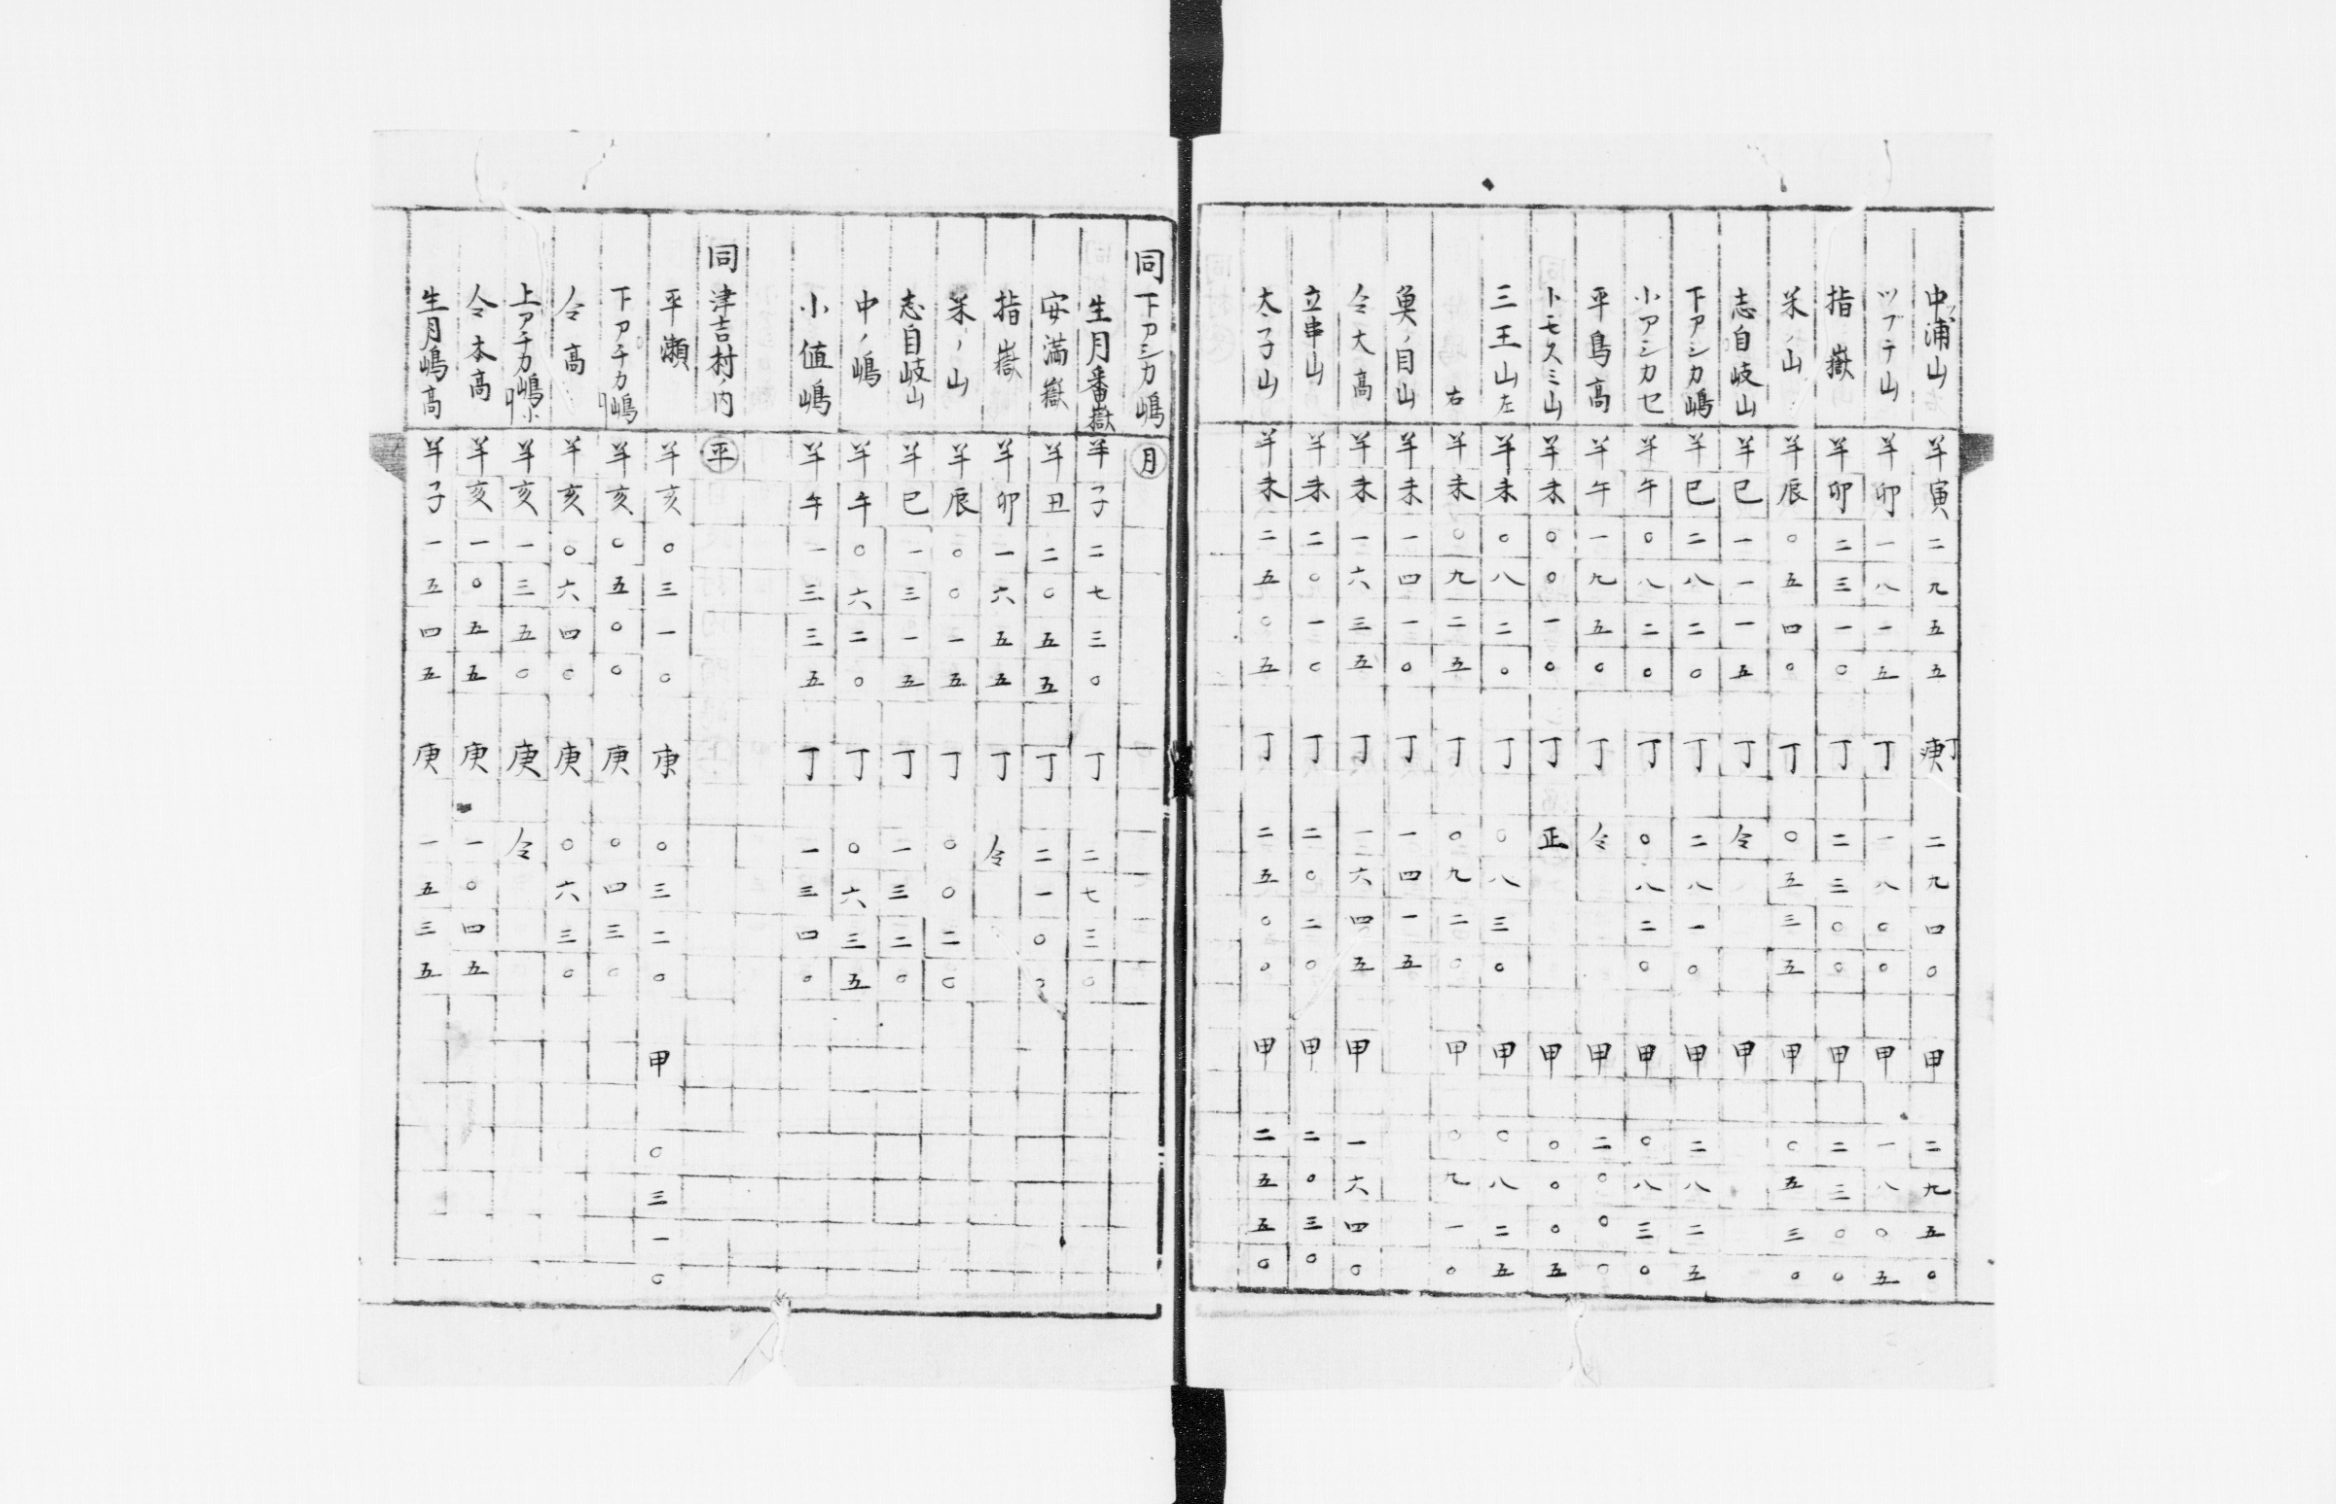 中浦山 半寅 二九五五 庚丁 二九四〇 甲 二九五〇
ツブテ山 半卯 一八一五 丁 一八〇〇 甲 一八〇五
指嶽 半卯 二三一〇 丁 二三〇〇 甲 二三〇〇
米ノ山 半辰 〇五四〇 丁 〇五三五 甲 〇五三〇
志自岐山 半巳 一一一五 丁 仝 甲
下アシカ嶋 半巳 二八二〇 丁 二八一〇 甲 二八二五
小アシカセ 半午 〇八二〇 丁 〇八二〇 甲 〇八三〇
平島高 半午 一九五〇 丁 仝 甲 二〇〇〇
トモスミ山 半未 〇〇一〇 丁 正 甲 〇〇〇五
三王山左 半未 〇八二〇 丁 〇八三〇 甲 〇八二五
右 半未 〇九二五 丁 〇九二〇 甲 〇九一〇
魚ノ目山 半未 一四一〇 丁 一四一五
仝大高 半未 一六三五 丁 一六四五 甲 一六四〇
立串山 半未 二〇一〇 丁 二〇二〇 甲 二〇三〇
太子山 半未 二五〇五 丁 二五〇〇 甲 二五五〇
同下アシカ嶋 月
生月番嶽 半子 二七三〇 丁 二七三〇
安満嶽 半丑 二〇五五 丁 二一〇〇
指嶽 半卯 一六五五 丁 仝
米ノ山 半辰 〇〇一五 丁 〇〇二〇
志自岐山 半巳 一三一五 丁 一三二〇
中ノ嶋 半午 〇六二〇 丁 〇六三五
小値嶋 半午 一三三五 丁 一三四〇
同津吉村ノ内 平
平瀬 半亥 〇三一〇 庚 〇三二〇 甲 〇三一〇
下アチカ嶋 半亥 〇五〇〇 庚 〇四三〇
仝高 半亥 〇六四〇 庚 〇六三〇
上アチカ嶋小 半亥 一三五〇 庚 仝
仝本高 半亥 一〇五五 庚 一〇四五
生月嶋高 半子 一五四五 庚 一五三五